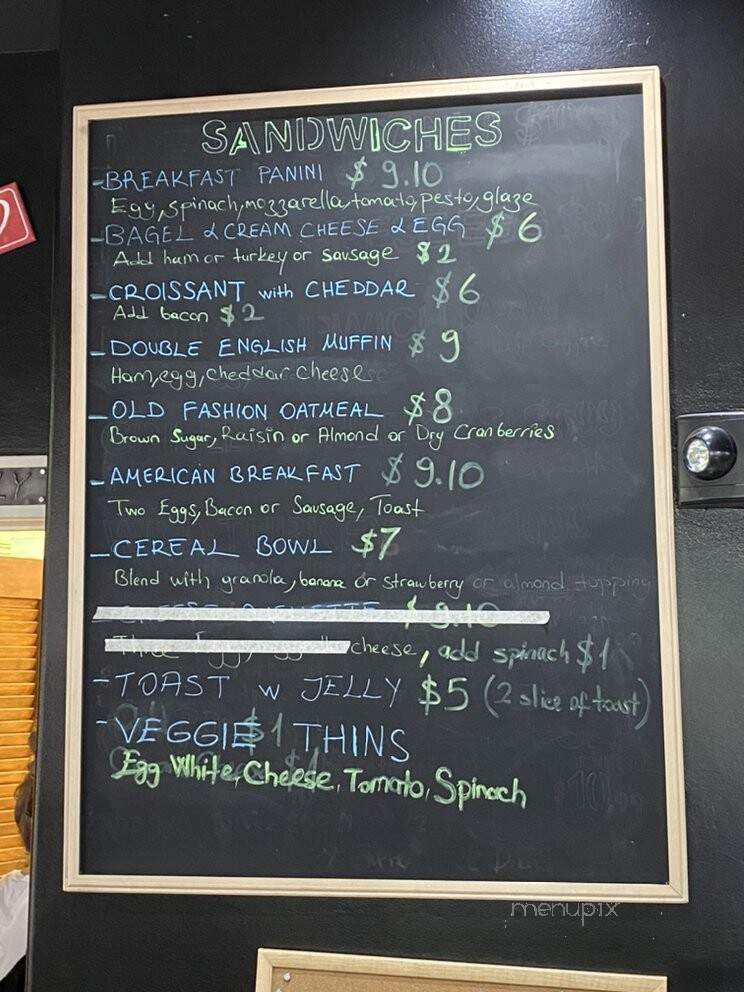 SANDWICHES
-BREAKFAST PANINI $9.10
Egg, spinach, mozzarella, tomato, pesto, glaze
-BAGEL & CREAM CHEESE & EGG $6
Add ham or turkey or sausage $2
-CROISSANT with CHEDDAR $6
Add bacon $2
-DOUBLE ENGLISH MUFFIN $9
Ham, egg, cheddar cheese
-OLD FASHION OATMEAL $8
Brown Sugar, Raisin or Almond or Dry Cranberries
-AMERICAN BREAKFAST $9.10
Two Eggs, Bacon or Sausage, Toast
-CEREAL BOWL $7
Blend with granola, banana or strawberry or almond topping
$9.10
cheese, add spinach $1
-TOAST w JELLY $5 (2 slice of toast)
-VEGGIE THINS
Egg White, Cheese, Tomato, Spinach
menupix